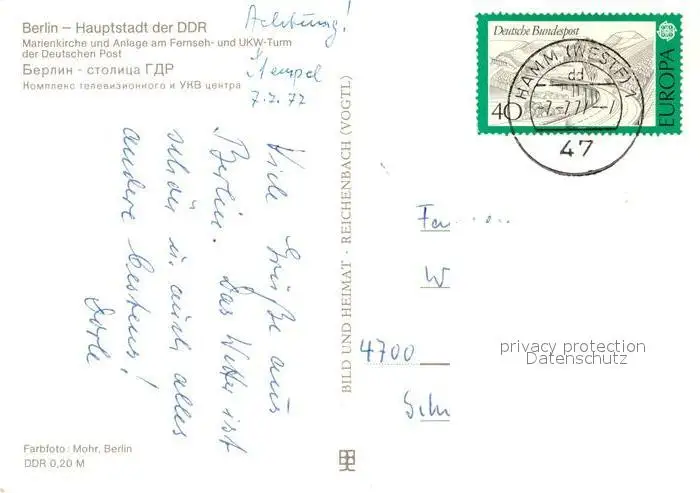 Berlin – Hauptstadt der DDR
Marienkirche und Anlage am Fernseh- und UKW-Turm
der Deutschen Post
Берлин - столица ГДР
Комплекс телевизионного и УКВ центра
Achtung!
Stempel
7.7.77
Viele Grüße aus
Berlin. Das Wetter ist
schön u. auch alles
andere bestens!
Dörte
BILD UND HEIMAT · REICHENBACH (VOGTL)
Deutsche Bundespost
40
EUROPA
HAMM (WESTF) 1
dd
-7.-7.77.--7
47
Fam
W
4700
privacy protection
Datenschutz
Farbfoto: Mohr, Berlin
DDR 0,20 M